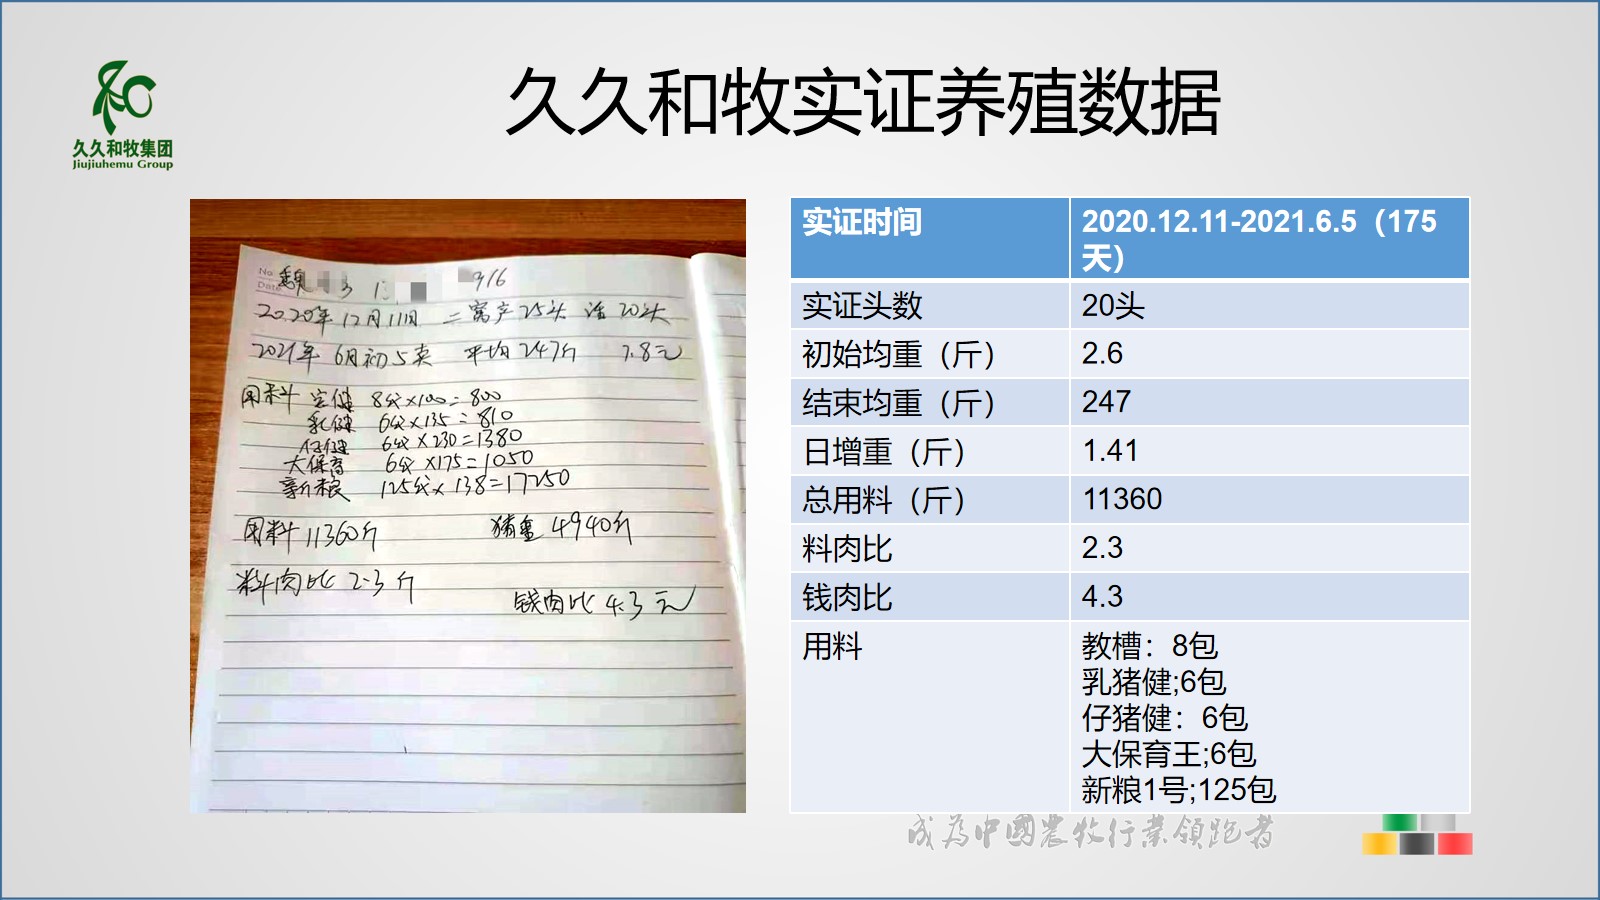 久久和牧集团
Jiujiuhemu Group
久久和牧实证养殖数据
No
Date
魏
3
1
9/6
2020年12月11日 二窝产25头 活20头
2021年 6月初5卖 平均247斤 7.8元
用料 宝健 8袋×100=800
乳健 6袋×135=810
仔健 6袋×230=1380
大保育 6袋×175=1050
新粮 125袋×138=17250
用料11360斤 猪重4940斤
料肉比 2.3斤
钱肉比 4.3元
实证时间 2020.12.11-2021.6.5（175
天）
实证头数 20头
初始均重（斤） 2.6
结束均重（斤） 247
日增重（斤） 1.41
总用料（斤） 11360
料肉比 2.3
钱肉比 4.3
用料 教槽：8包
乳猪健;6包
仔猪健：6包
大保育王;6包
新粮1号;125包
成为中國農牧行業領跑者